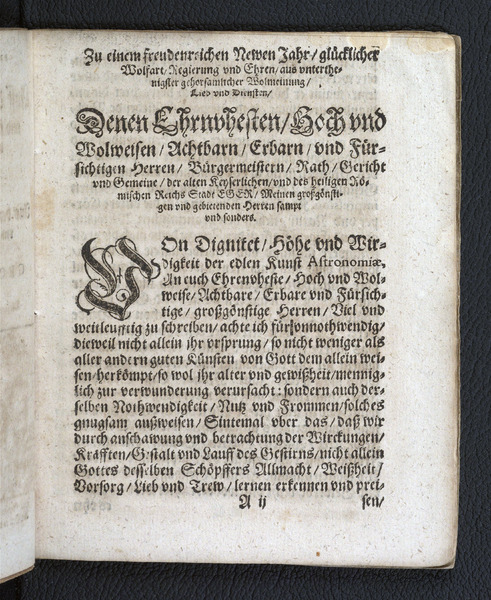 Zu einem freudenreichen Newen Jahr/ glücklicher
Wolfart/ Regierung vnd Ehren/ aus vnterthe-
nigster gehorsamlicher Wolmeinung/
Lieb vnd Diensten/
Denen Ehrnvhesten/ Hoch vnd
Wolweisen/ Achtbarn/ Erbarn/ vnd Für-
sichtigen Herren/ Bürgermeistern/ Rath/ Gericht
vnd Gemeine/ der alten Keyserlichen/ vnd des heiligen Rö-
mischen Reichs Stadt EGER/ Meinen großgönsti-
gen vnd gebietenden Herren sampt
vnd sonders.
VOn Dignitet/ Höhe vnd Wir-
digkeit der edlen Kunst Astronomiæ,
An euch Ehrenvheste/ Hoch vnd Wol-
weise/ Achtbare/ Erbare vnd Fürsich-
tige/ großgönstige Herren/ Viel vnd
weitleufftig zu schreiben/ achte ich für vnnothwendig/
dieweil nicht allein jhr vrsprung/ so nicht weniger als
aller andern guten Künsten von Gott dem allein wei-
sen/ herkömpt/ so wol jhr alter vnd gewißheit/ mennig-
lich zur verwunderung verursacht: sondern auch der-
selben Nothwendigkeit/ Nutz vnd Frommen/ solches
gnugsam außweisen/ Sintemal vber das/ daß wir
durch anschawung vnd betrachtung der Wirckungen/
Kräfften/ Gestalt vnd Lauff des Gestirns/ nicht allein
Gottes desselben Schöpffers Allmacht/ Weißheit/
Vorsorg/ Lieb vnd Trew/ lernen erkennen vnd prei-
A ij sen/